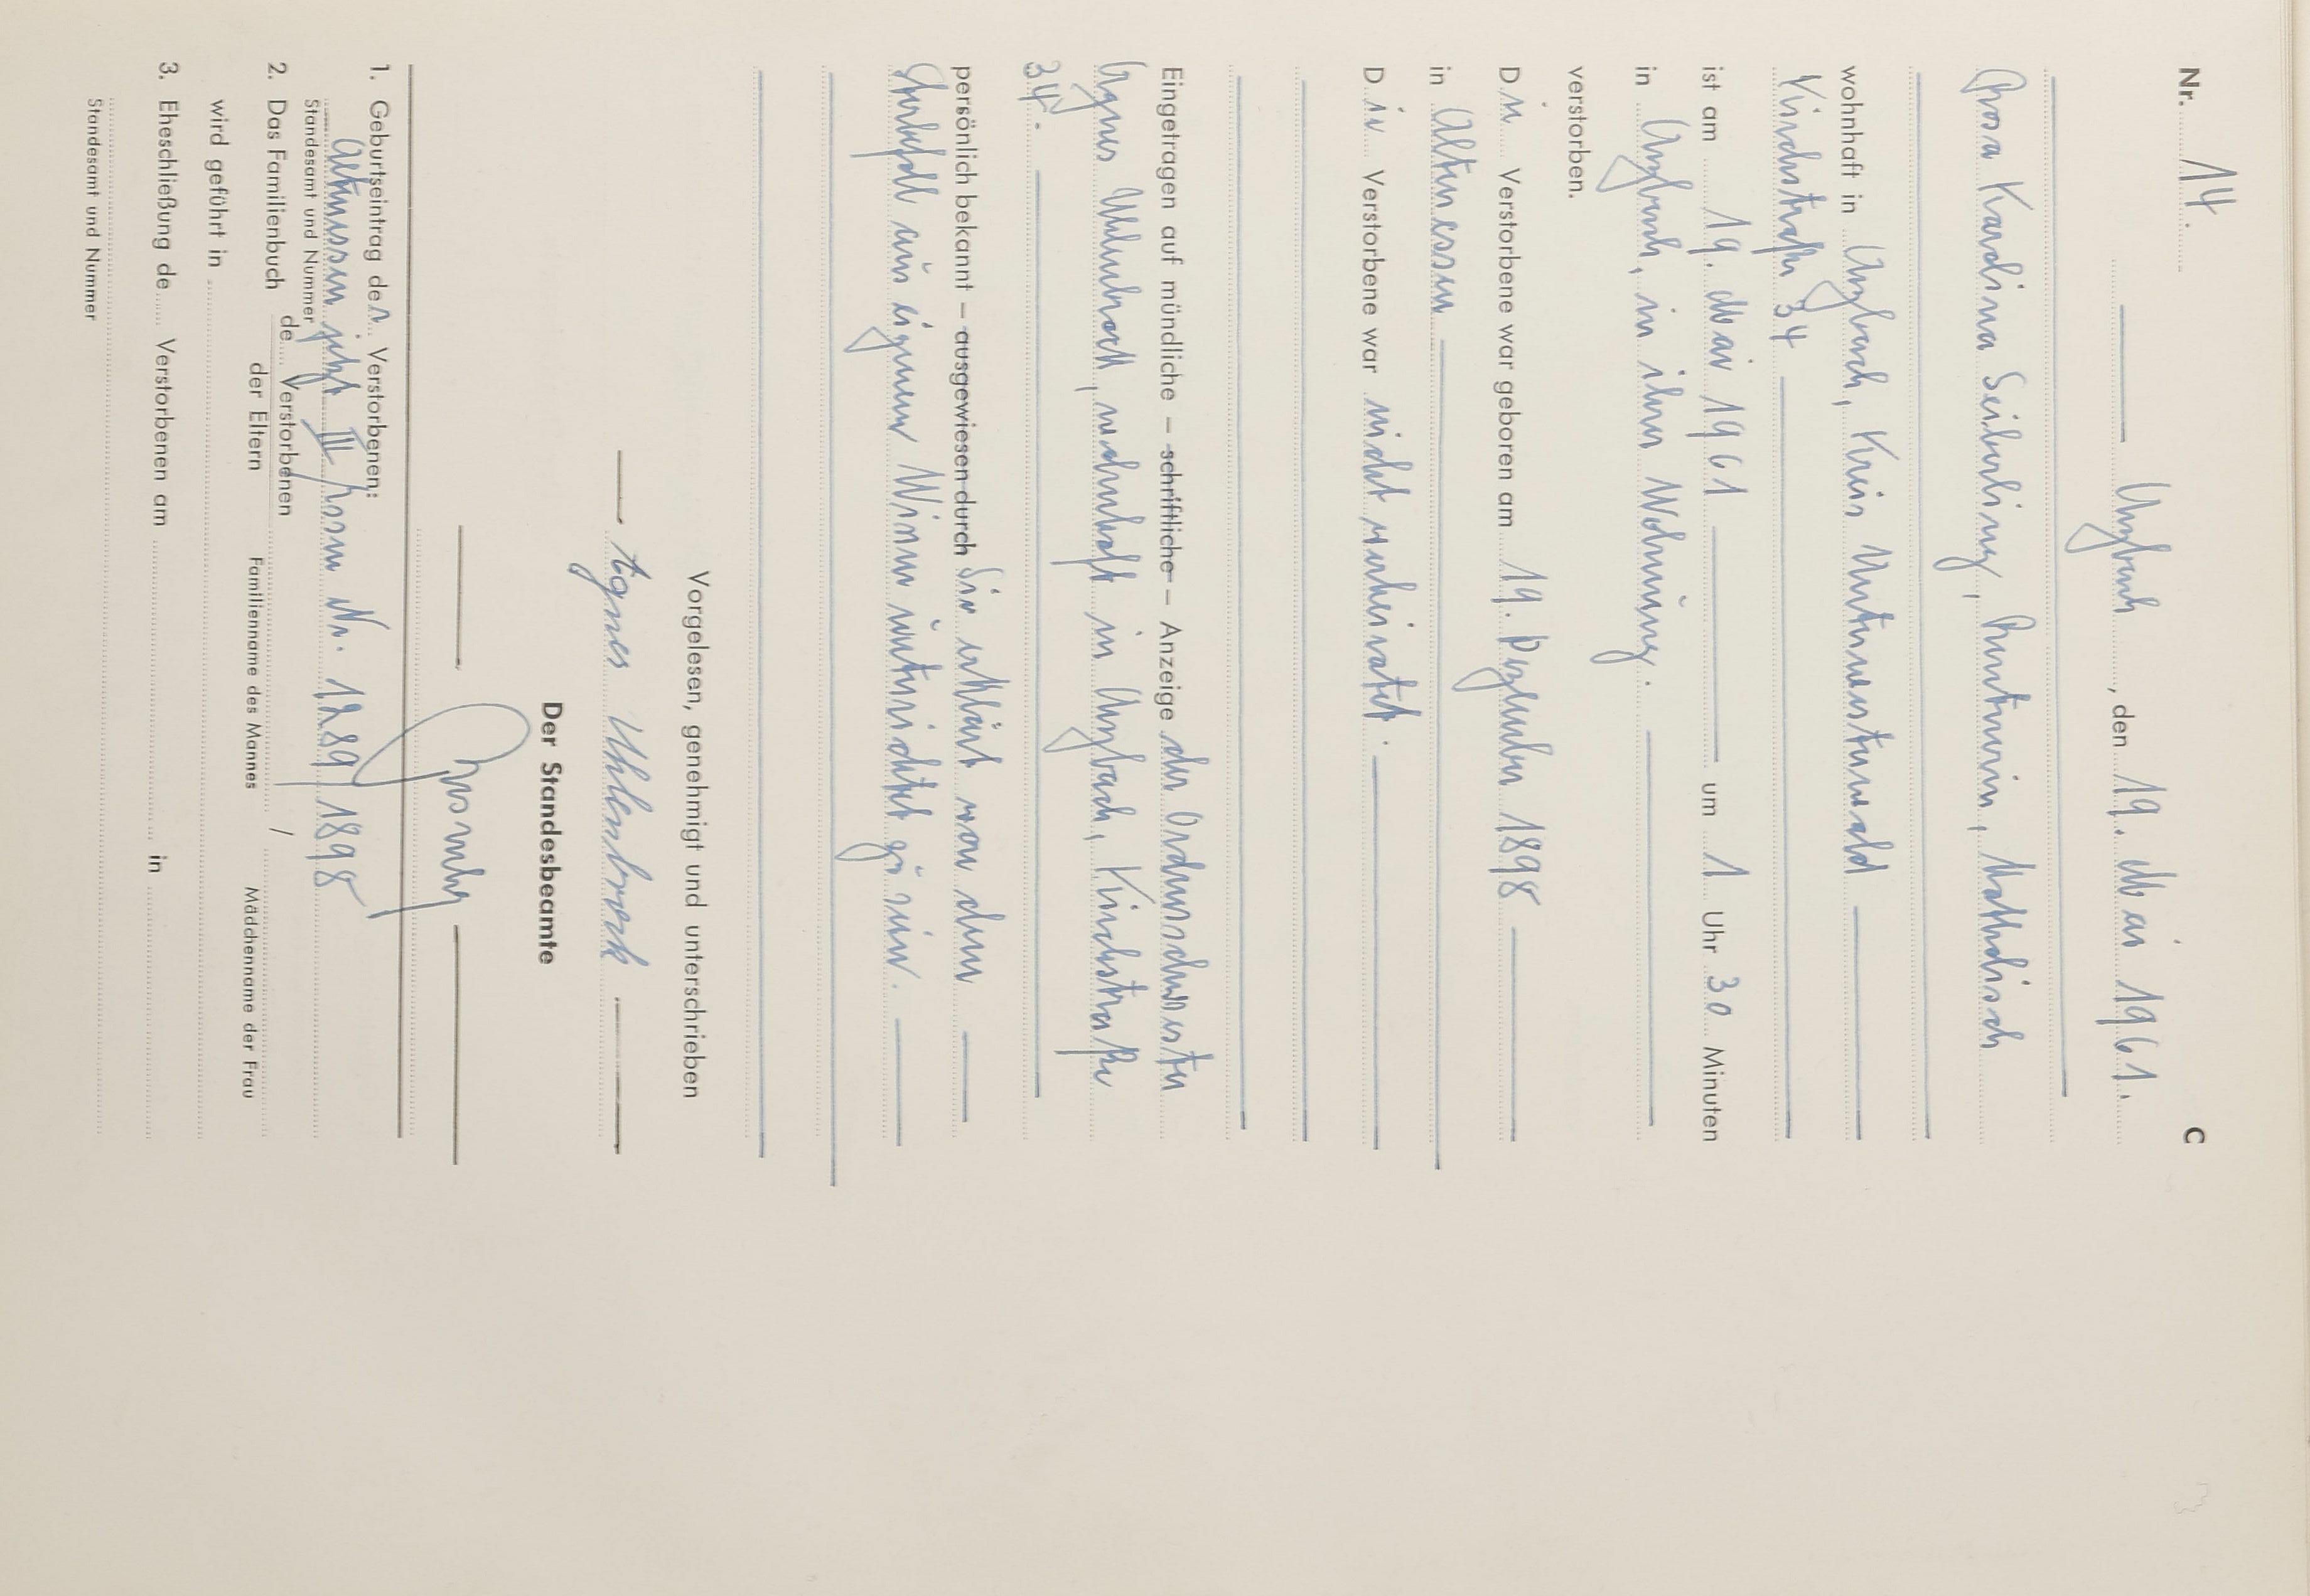 Nr. 14. C
Arzbach, den 19. Mai 1961.
Rosa Karolina Seiberling, Rentnerin, katholisch
wohnhaft in Arzbach, Kreis Unterwesterwald
Kirchstraße 34
ist am 19. Mai 1961 um 1 Uhr 30 Minuten
in Arzbach, in ihrer Wohnung.
verstorben.
Die Verstorbene war geboren am 19. Dezember 1898
in Altenessen
Die Verstorbene war nicht verheiratet.
Eingetragen auf mündliche – schriftliche – Anzeige der Ordensschwester
Agnes Uhlenbrock, wohnhaft in Arzbach, Kirchstraße
34.
persönlich bekannt – ausgewiesen durch Sie erklärt von dem
Sterbefall aus eigenem Wissen unterrichtet zu sein.
Vorgelesen, genehmigt und unterschrieben
Agnes Uhlenbrock
Der Standesbeamte
1. Geburtseintrag der Verstorbenen:
Altenessen jetzt II Essen Nr. 1289/1898
Standesamt und Nummer
2. Das Familienbuch de Verstorbenen der Eltern /
Familienname des Mannes Mädchenname der Frau
wird geführt in
3. Eheschließung de Verstorbenen am in
Standesamt und Nummer